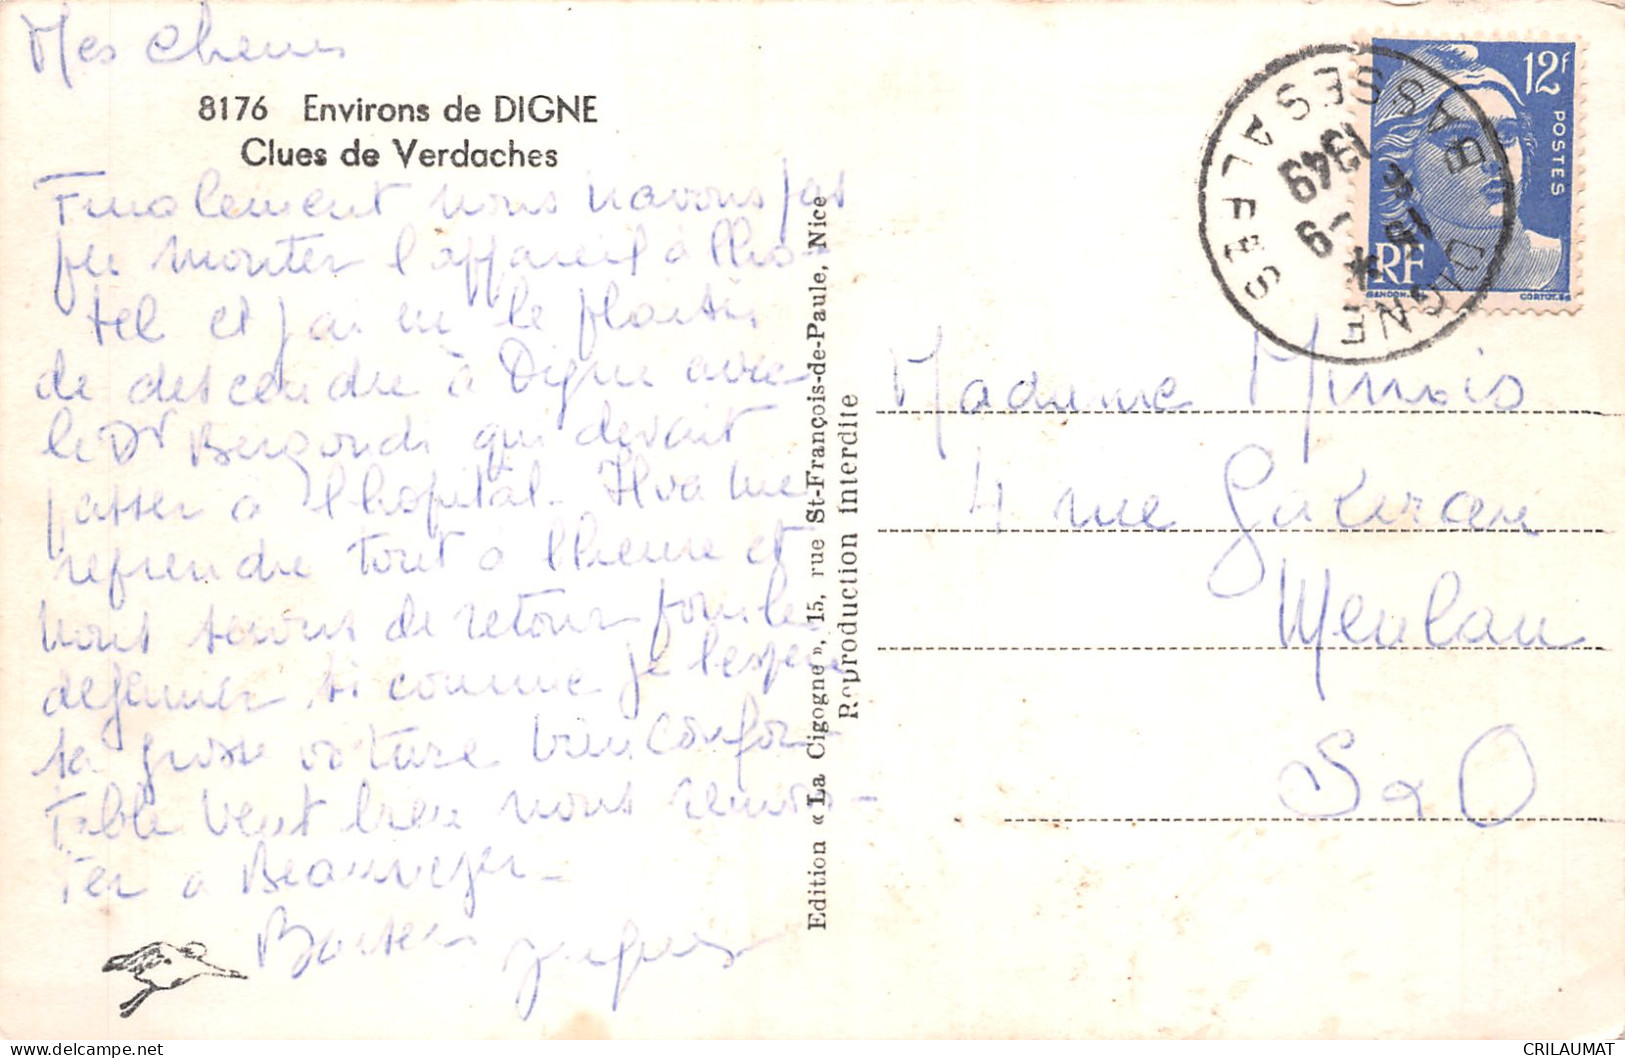 Mes
8176 Environs de DIGNE
Clues de Verdaches
Finalement nous navons pas
pu monter l'appareil à l'ho-
tel et j'ai eu le plaisir
de descendre à Digne avec
le Dr qui devait
passer a l'hopital. Il va me
reprendre tout a l'heure et
nous serons de retour pour le
dejeuner, si comme je l'espère
sa grosse voiture bien confor-
table veut bien nous remon-
ter a
Edition « La Cigogne », 15, rue St-François-de-Paule, Nice
Reproduction Interdite
12f
POSTES
RF
GANDON
CORTOT.SC
DIGNE
BASSES ALPES
1949
Madame
4 rue
Meulan
S & O
CRILAUMAT